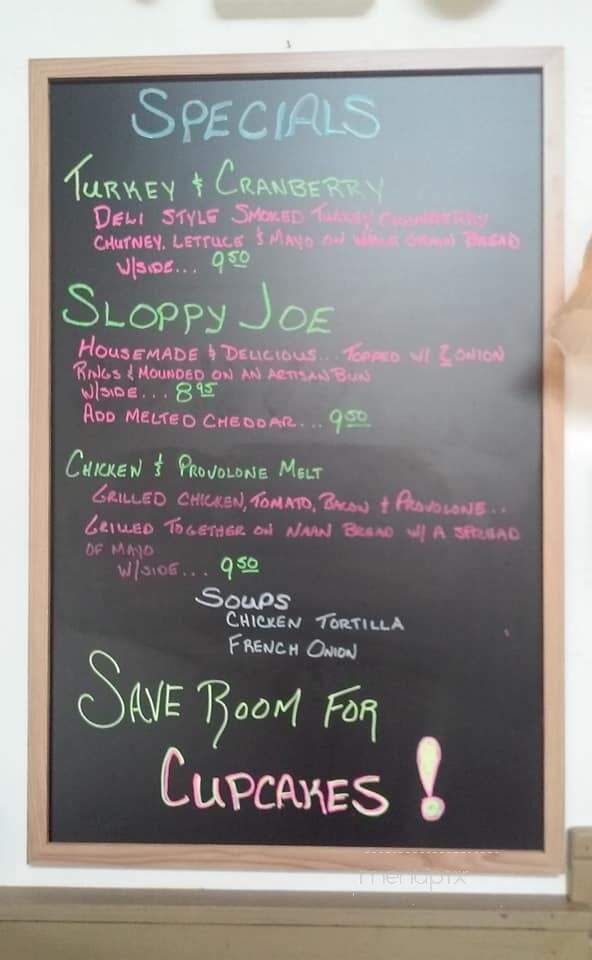 SPECIALS
TURKEY & CRANBERRY
DELI STYLE SMOKED TURKEY CRANBERRY
CHUTNEY, LETTUCE & MAYO ON WHOLE GRAIN BREAD
W/SIDE... 9 50
SLOPPY JOE
HOUSEMADE & DELICIOUS... TOPPED W/ 2 ONION
RINGS & MOUNDED ON AN ARTISAN BUN
W/SIDE... 8 95
ADD MELTED CHEDDAR... 9 50
CHICKEN & PROVOLONE MELT
GRILLED CHICKEN, TOMATO, BACON & PROVOLONE..
GRILLED TOGETHER ON NAAN BREAD W/ A SPREAD
OF MAYO
W/SIDE... 9 50
SOUPS
CHICKEN TORTILLA
FRENCH ONION
SAVE ROOM FOR
CUPCAKES!
menupix